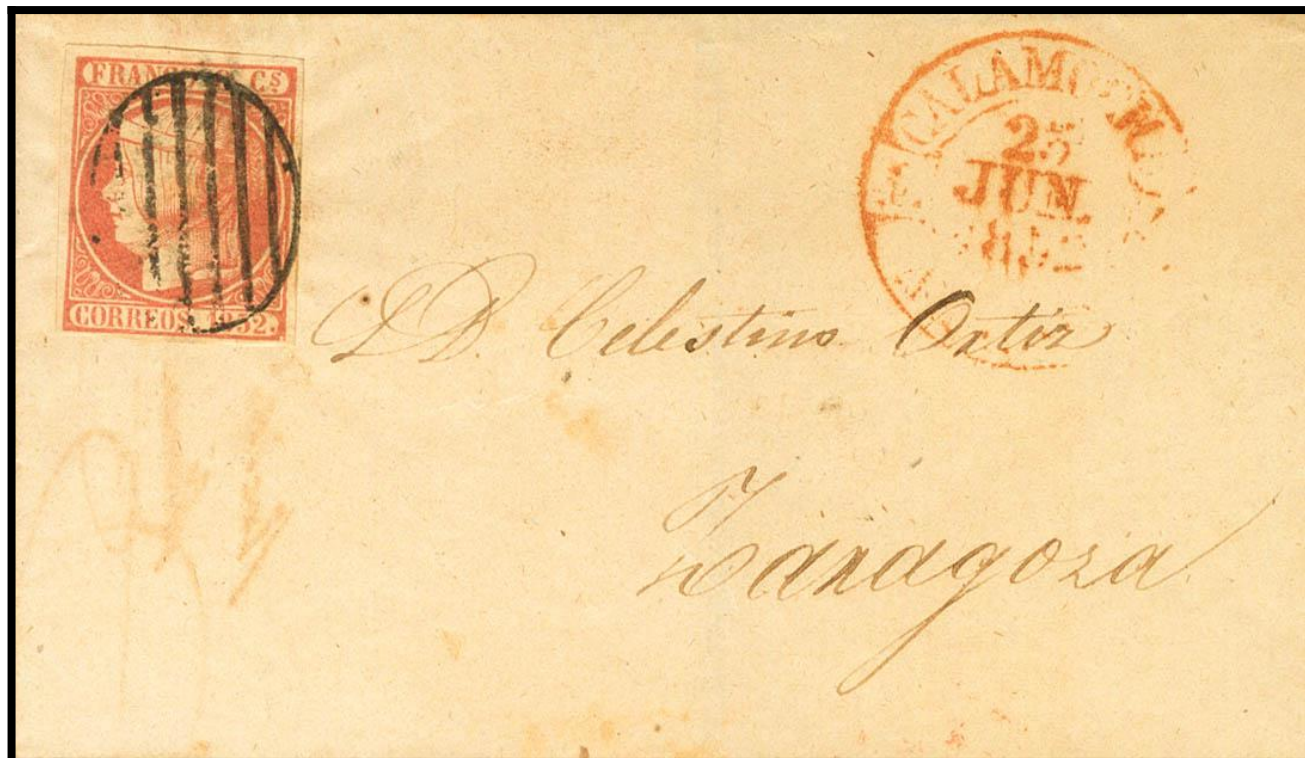 FRANCO Cs
CORREOS 1852.
CALAMOCHA
25
JUN.
1852
D. Celestino Ortiz
Zaragoza